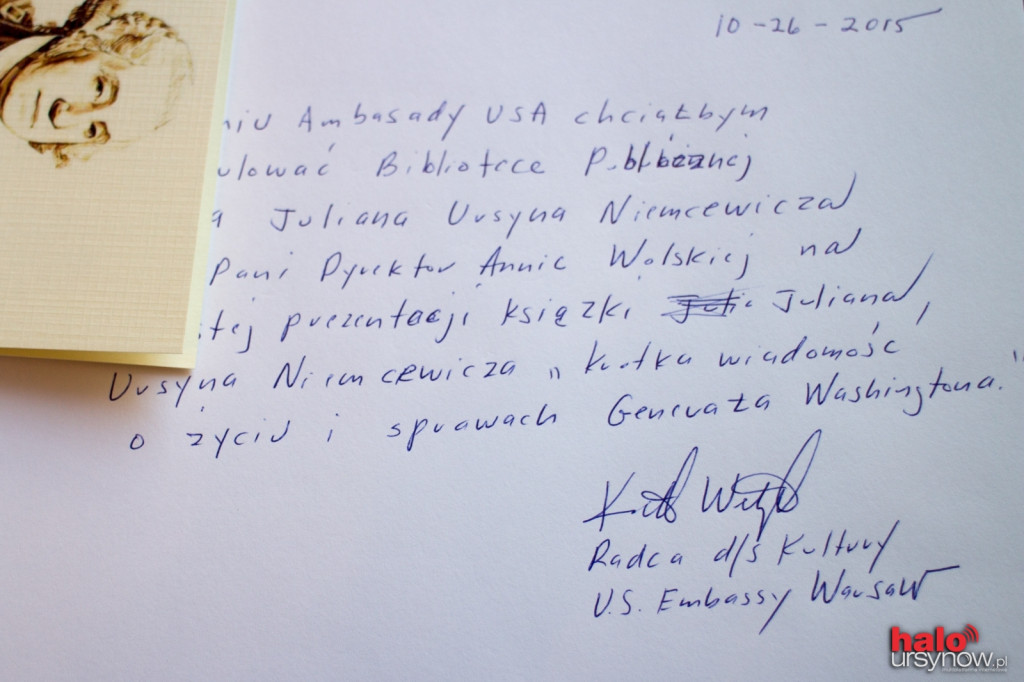 10-26-2015
niu Ambasady USA chciałbym
ulować Bibliotece Publicznej
a Juliana Ursyna Niemcewicza
Pani Dyrektor Annie Wolskiej na
itej prezentacji książki Juliana
Ursyna Niemcewicza „Krótka wiadomość
o życiu i sprawach Generała Washingtona."
Radca d/s Kultury
U.S. Embassy Warsaw
halo
ursynow.pl